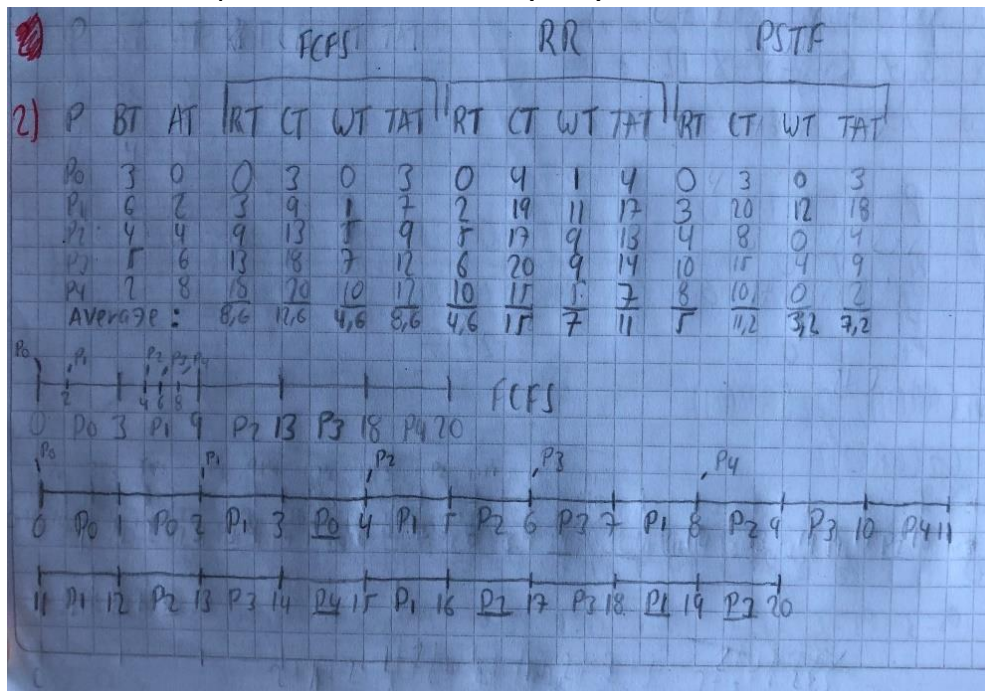 FCFS RR PSTF
2) P BT AT RT CT WT TAT RT CT WT TAT RT CT WT TAT
P0 3 0 0 3 0 3 0 4 1 4 0 3 0 3
P1 6 2 3 9 1 7 2 19 11 17 3 20 12 18
P2 4 4 9 13 5 9 5 17 9 13 4 8 0 4
P3 5 6 13 18 7 12 6 20 9 14 10 15 4 9
P4 2 8 18 20 10 12 10 15 5 7 8 10 0 2
Average: 8,6 12,6 4,6 8,6 4,6 15 7 11 5 11,2 3,2 7,2
P0 P1 P2 P3 P4
2 4 6 8 FCFS
0 P0 3 P1 9 P2 13 P3 18 P4 20
P0 P1 P2 P3 P4
0 P0 1 P0 2 P1 3 P0 4 P1 5 P2 6 P3 7 P1 8 P2 9 P3 10 P4 11
11 P1 12 P2 13 P3 14 P4 15 P1 16 P2 17 P3 18 P1 19 P3 20